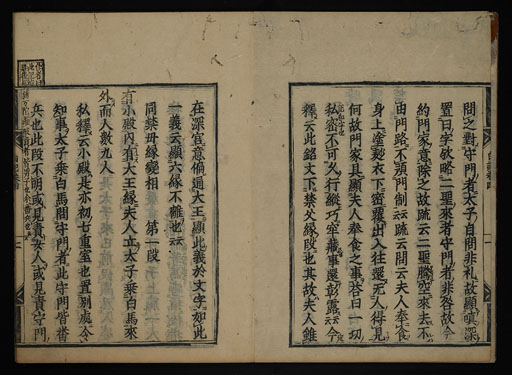 問之對守門者太子自問非礼故顯嗔深
置曰字欤略二聖來者守門者非咎故今
約門家意除之故疏云二聖騰空來去不
由門路不預門制云疏云問云夫人奉食
身上塗麨衣下密覆出入往還无人得見
何故門家具顯夫人奉食之事答曰一切
私密不可久行縱巧牢藏事還彰露云今
釋云此銘文下禁父緣段也其故夫人雖
在深宮意偏通大王顯此義於文字如此
一義云顯六緣不離也云
同禁母緣變相 第一段
有小殿內有大王緣夫人立太子乘白馬來
外而人數九人
私釋云小殿是亦初七重室也置別處今
知事太子乘白馬問守門者此守門皆畨
兵也此段不明或見責女人或見責守門